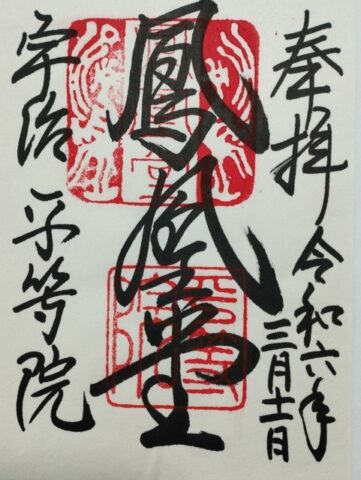 奉拝 令和六年
三月十一日
鳳凰堂
宇治 平等院